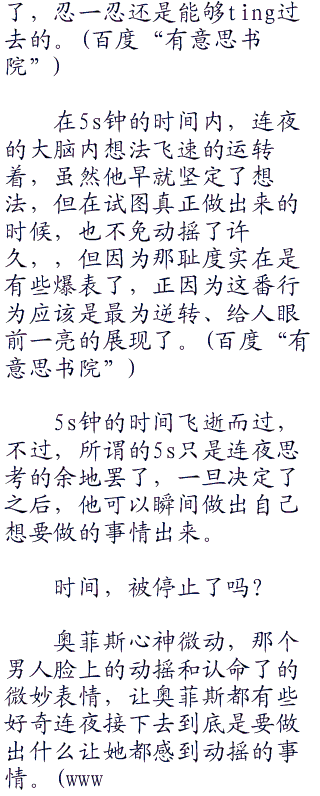 了，忍一忍还是能够ting过
去的。(百度“有意思书
院”)
在5s钟的时间内，连夜
的大脑内想法飞速的运转
着，虽然他早就坚定了想
法，但在试图真正做出来的
时候，也不免动摇了许
久，，但因为那耻度实在是
有些爆表了，正因为这番行
为应该是最为逆转、给人眼
前一亮的展现了。(百度“有
意思书院”)
5s钟的时间飞逝而过，
不过，所谓的5s只是连夜思
考的余地罢了，一旦决定了
之后，他可以瞬间做出自己
想要做的事情出来。
时间，被停止了吗？
奥菲斯心神微动，那个
男人脸上的动摇和认命了的
微妙表情，让奥菲斯都有些
好奇连夜接下去到底是要做
出什么让她都感到动摇的事
情。(www